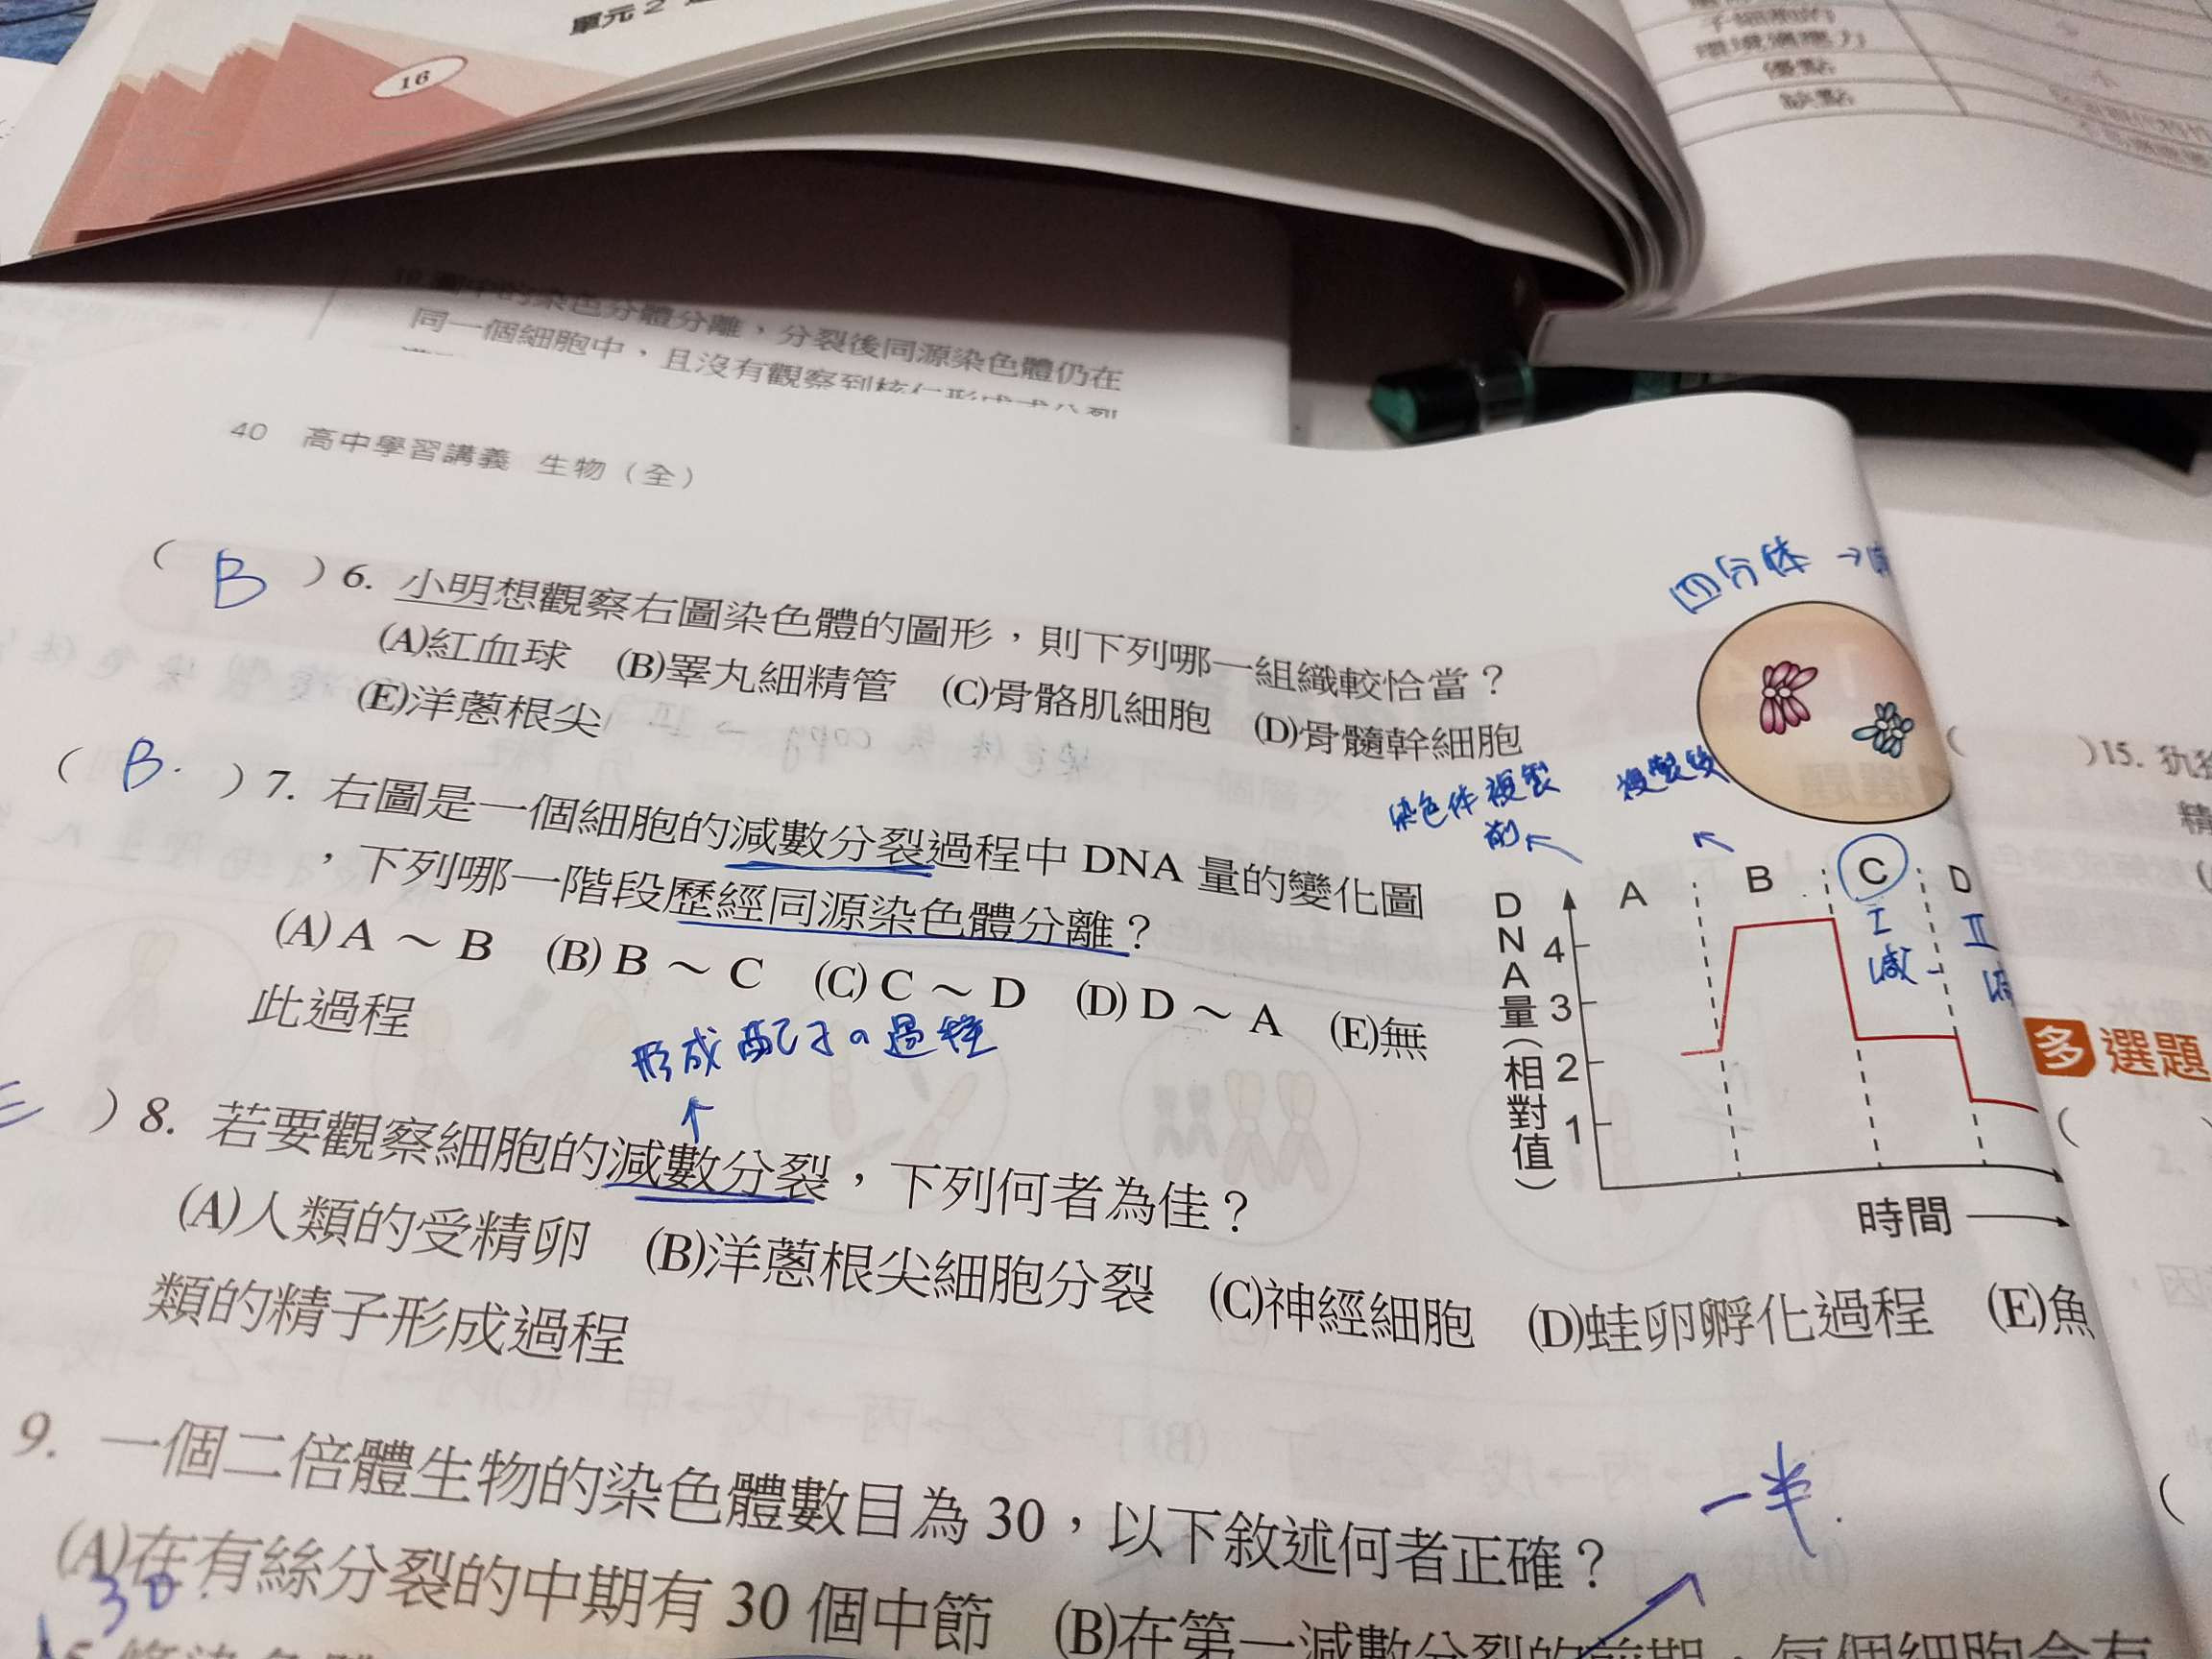 單元2
16
環境適應力
優點
缺點
10.圖中的染色分體分離，分裂後同源染色體仍在
同一個細胞中，且沒有觀察到核仁形成或分裂
40 高中學習講義 生物（全）
四分体→
( B )6. 小明想觀察右圖染色體的圖形，則下列哪一組織較恰當？
(A)紅血球 (B)睪丸細精管 (C)骨骼肌細胞 (D)骨髓幹細胞
(E)洋蔥根尖
染色体複製前
複製後
( B. )7. 右圖是一個細胞的減數分裂過程中 DNA 量的變化圖
，下列哪一階段歷經同源染色體分離？
(A) A ～ B (B) B ～ C (C) C ～ D (D) D ～ A (E)無
此過程
A B C D
I 減
II
DNA量（相對值）
4
3
2
1
時間
形成配子の過程
E )8. 若要觀察細胞的減數分裂，下列何者為佳？
(A)人類的受精卵 (B)洋蔥根尖細胞分裂 (C)神經細胞 (D)蛙卵孵化過程 (E)魚
類的精子形成過程
一半
9. 一個二倍體生物的染色體數目為 30，以下敘述何者正確？
(A)在有絲分裂的中期有 30 個中節 (B)在第一減數分裂的前期，每個細胞含有
30
)15.
精
多選題
2.